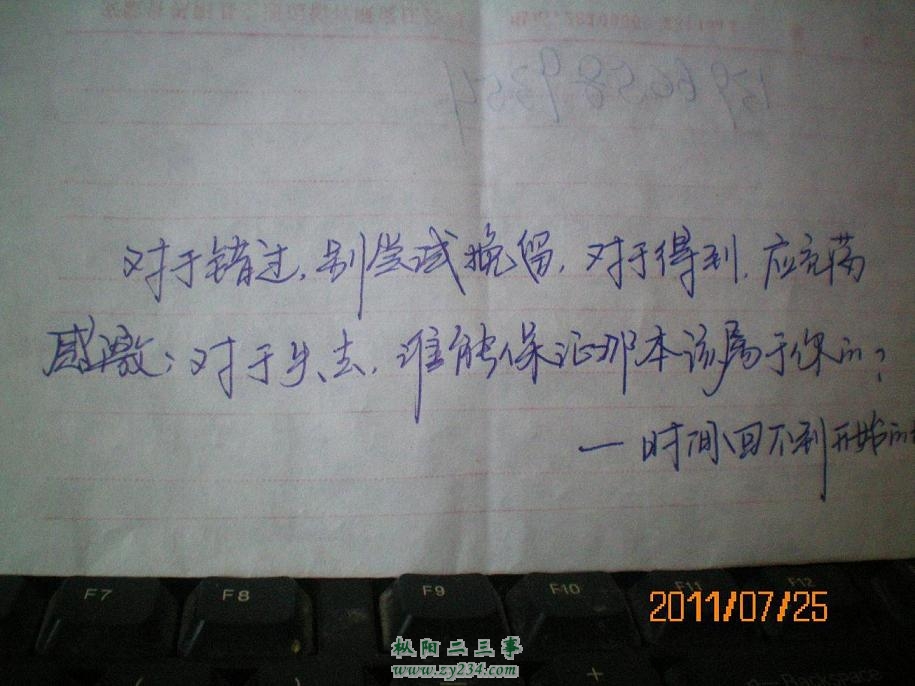 对于错过，别尝试挽留，对于得到，应充满
感激；对于失去，谁能保证那本该属于你的？
—时间回不到开始的
F7 F8 F9 F10 F11 F12
2011/07/25
枞阳二三事
www.zy234.com
+ Backspace